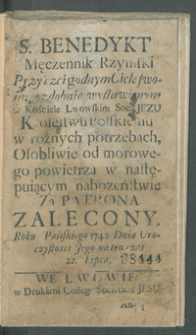 S. BENEDYKT
Męczennik Rzymski
Przy czci godnym Ciele swo-
im, ozdobnie wystawionym
w Kościele Lwowskim Soc: JEZU
Krolestwu Polskiemu
w rożnych potrzebach,
Osobliwie od morowe-
go powietrza w nastę-
puiącym nabożeństwie
Za PATRONA
ZALECONY.
Roku Pańskiego 1742 Dnia Uro-
czystości Jego na ten czas
22. Lipca.
28144
WE LWOWIE
w Drukarni Colleg: Societatis JESU